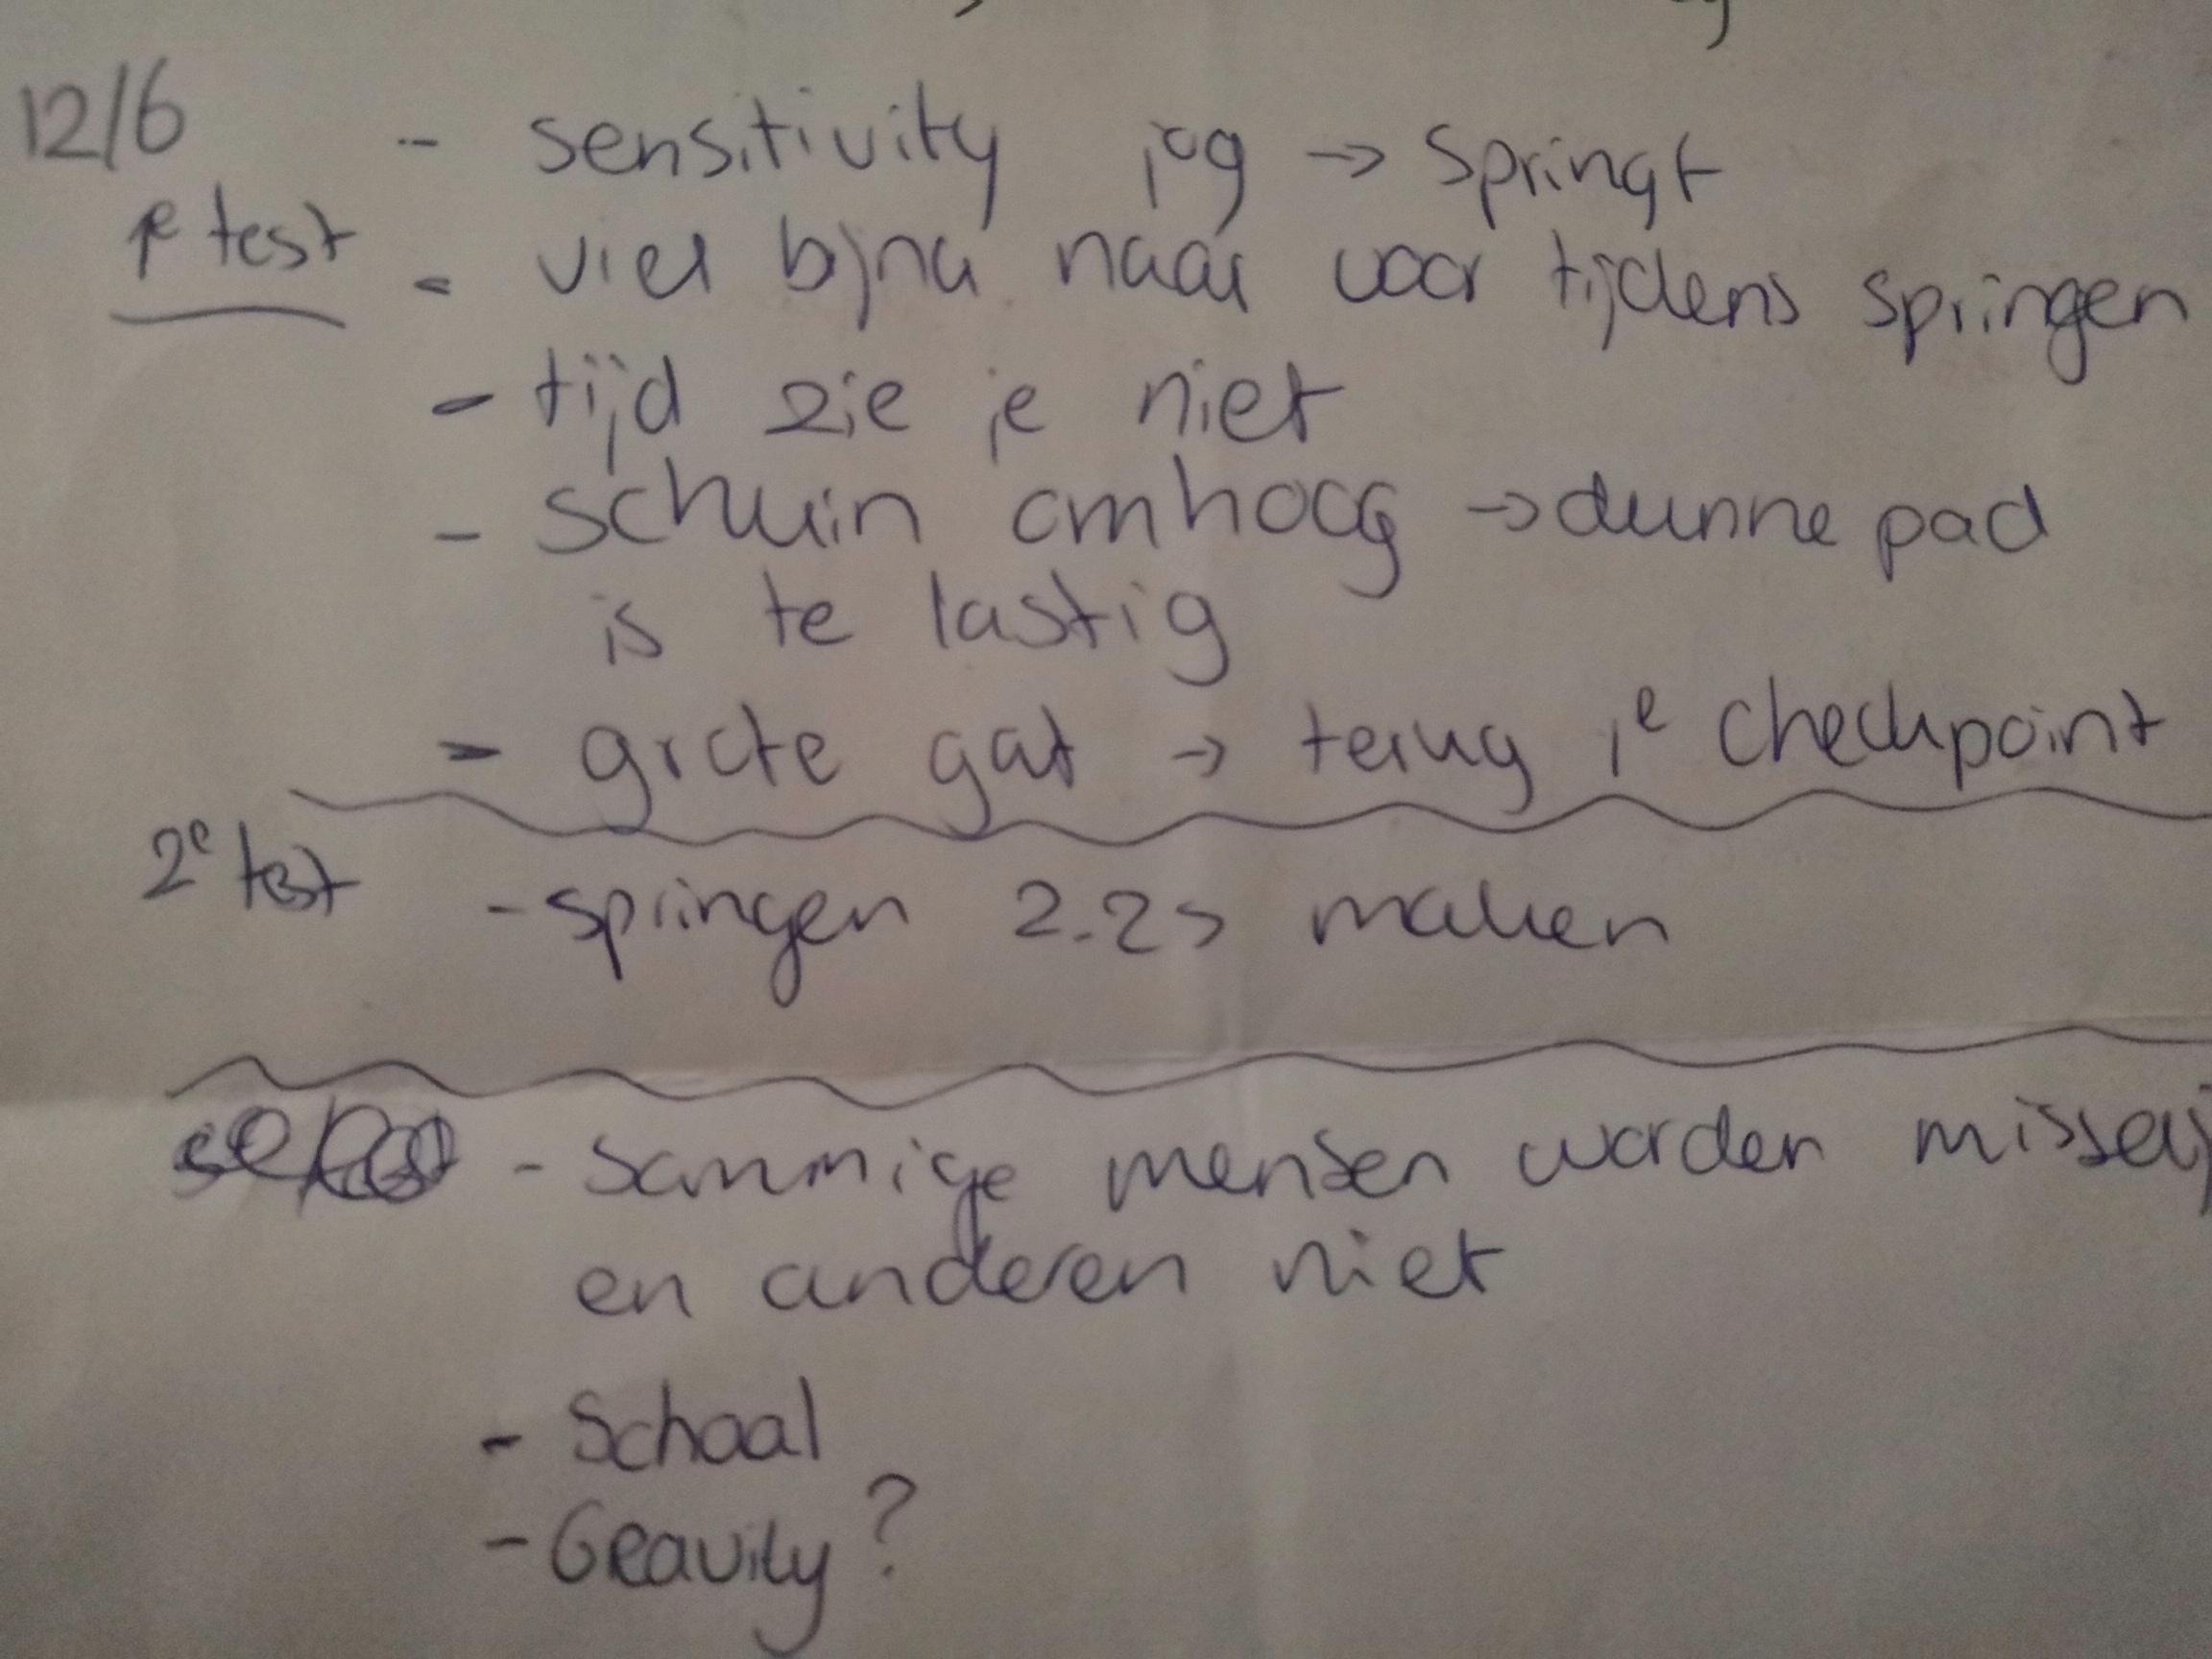 12/6
1e test
- sensitivity jog → springt
- viel bijna naar voor tijdens springen
- tijd zie je niet
- schuin omhoog → dunne pad
is te lastig
- grote gat → terug 1e checkpoint
2e test - springen 2.2s maken
- sommige mensen worden misselij
en anderen niet
- Schaal
- Gravity?